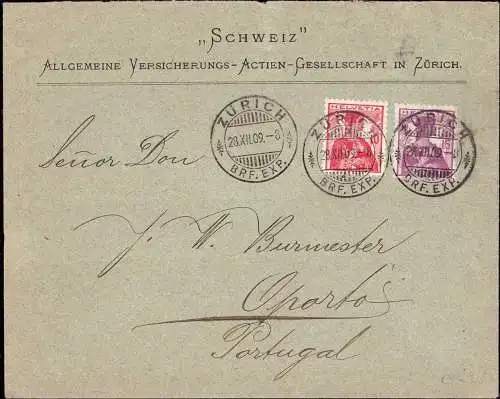 „Schweiz"
Allgemeine Versicherungs-Actien-Gesellschaft in Zürich.
ZÜRICH
28.XII.09.-8
BRF. EXP.
HELVETIA
ZÜRICH
28.XII.09.
BRF. EXP.
ZÜRICH
BRF. EXP.
Señor Don
J. W. Burmester
Oporto
Portugal